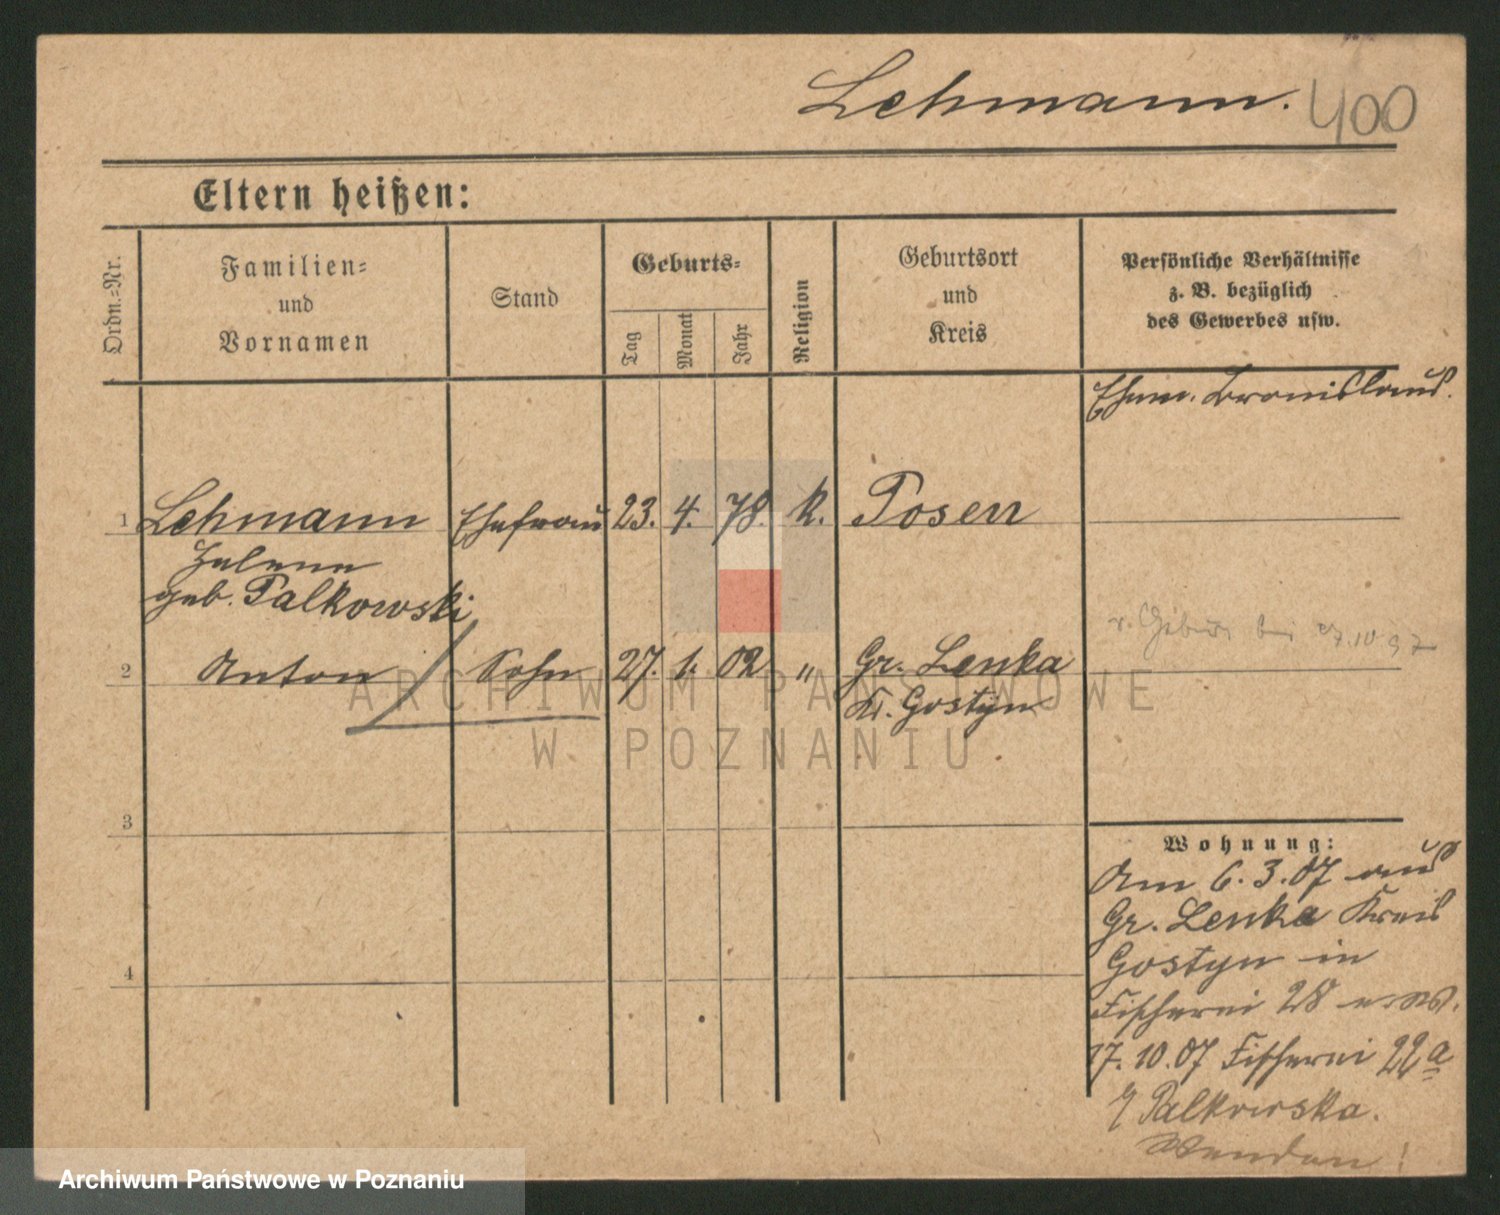 Lehmann. 400
Eltern heißen:
Ordn.=Nr.
Familien=
und
Vornamen
Stand
Geburts=
Tag
Monat
Jahr
Religion
Geburtsort
und
Kreis
Persönliche Verhältnisse
z. B. bezüglich
des Gewerbes usw.
Ehem. Bronislaus.
1 Lehmann Ehefrau 23. 4. 78. k. Posen
Helene
geb. Palkowski
2 Anton Sohn 27. 1. 02 " Gr. Lenka
Kr. Gostyn
3
4
Wohnung:
Am 6. 3. 07 aus
Gr. Lenka Kreis
Gostyn in
Fischerei 28
17. 10. 07 Fischerei 22a
Palkowska.
ARCHIWUM PAŃSTWOWE
W POZNANIU
Archiwum Państwowe w Poznaniu